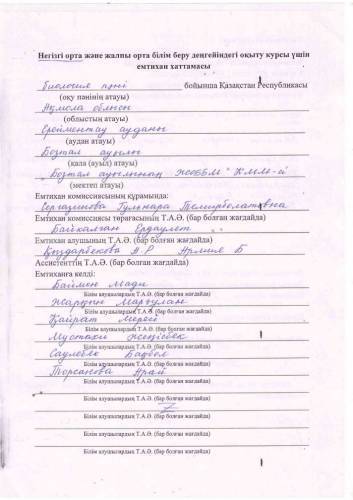 Негізгі орта және жалпы орта білім беру деңгейіндегі оқыту курсы үшін
емтихан хаттамасы
биология пәні бойынша Қазақстан Республикасы
(оқу пәнінің атауы)
Ақмола облысы
(облыстың атауы)
Ерейментау ауданы
(аудан атауы)
Бозтал ауылы
(қала (ауыл) атауы)
Бозтал ауылының ЖОББМ" КММ-й
(мектеп атауы)
Емтихан комиссиясының құрамында:
Сергазинова Гульнара Темирболатовна
Емтихан комиссиясы төрағасының Т.А.Ә. (бар болған жағдайда)
Байжалған Ердаулет
Емтихан алушының Т.А.Ә. (бар болған жағдайда)
Қыздарбекова А.Р Б
Ассистенттің Т.А.Ә. (бар болған жағдайда)
Емтиханға келді:
Баймен Мади
Білім алушылардың Т.А.Ә. (бар болған жағдайда)
Жарқын Марғұлан
Білім алушылардың Т.А.Ә. (бар болған жағдайда)
Қайрат Мерей
Білім алушылардың Т.А.Ә. (бар болған жағдайда)
Мустахи Жеңісбек
Білім алушылардың Т.А.Ә. (бар болған жағдайда)
Саулебек
Білім алушылардың Т.А.Ә. (бар болған жағдайда)
Торсанова Арай
Білім алушылардың Т.А.Ә. (бар болған жағдайда)
Білім алушылардың Т.А.Ә. (бар болған жағдайда)
Z
Білім алушылардың Т.А.Ә. (бар болған жағдайда)
Білім алушылардың Т.А.Ә. (бар болған жағдайда)
Білім алушылардың Т.А.Ә. (бар болған жағдайда)